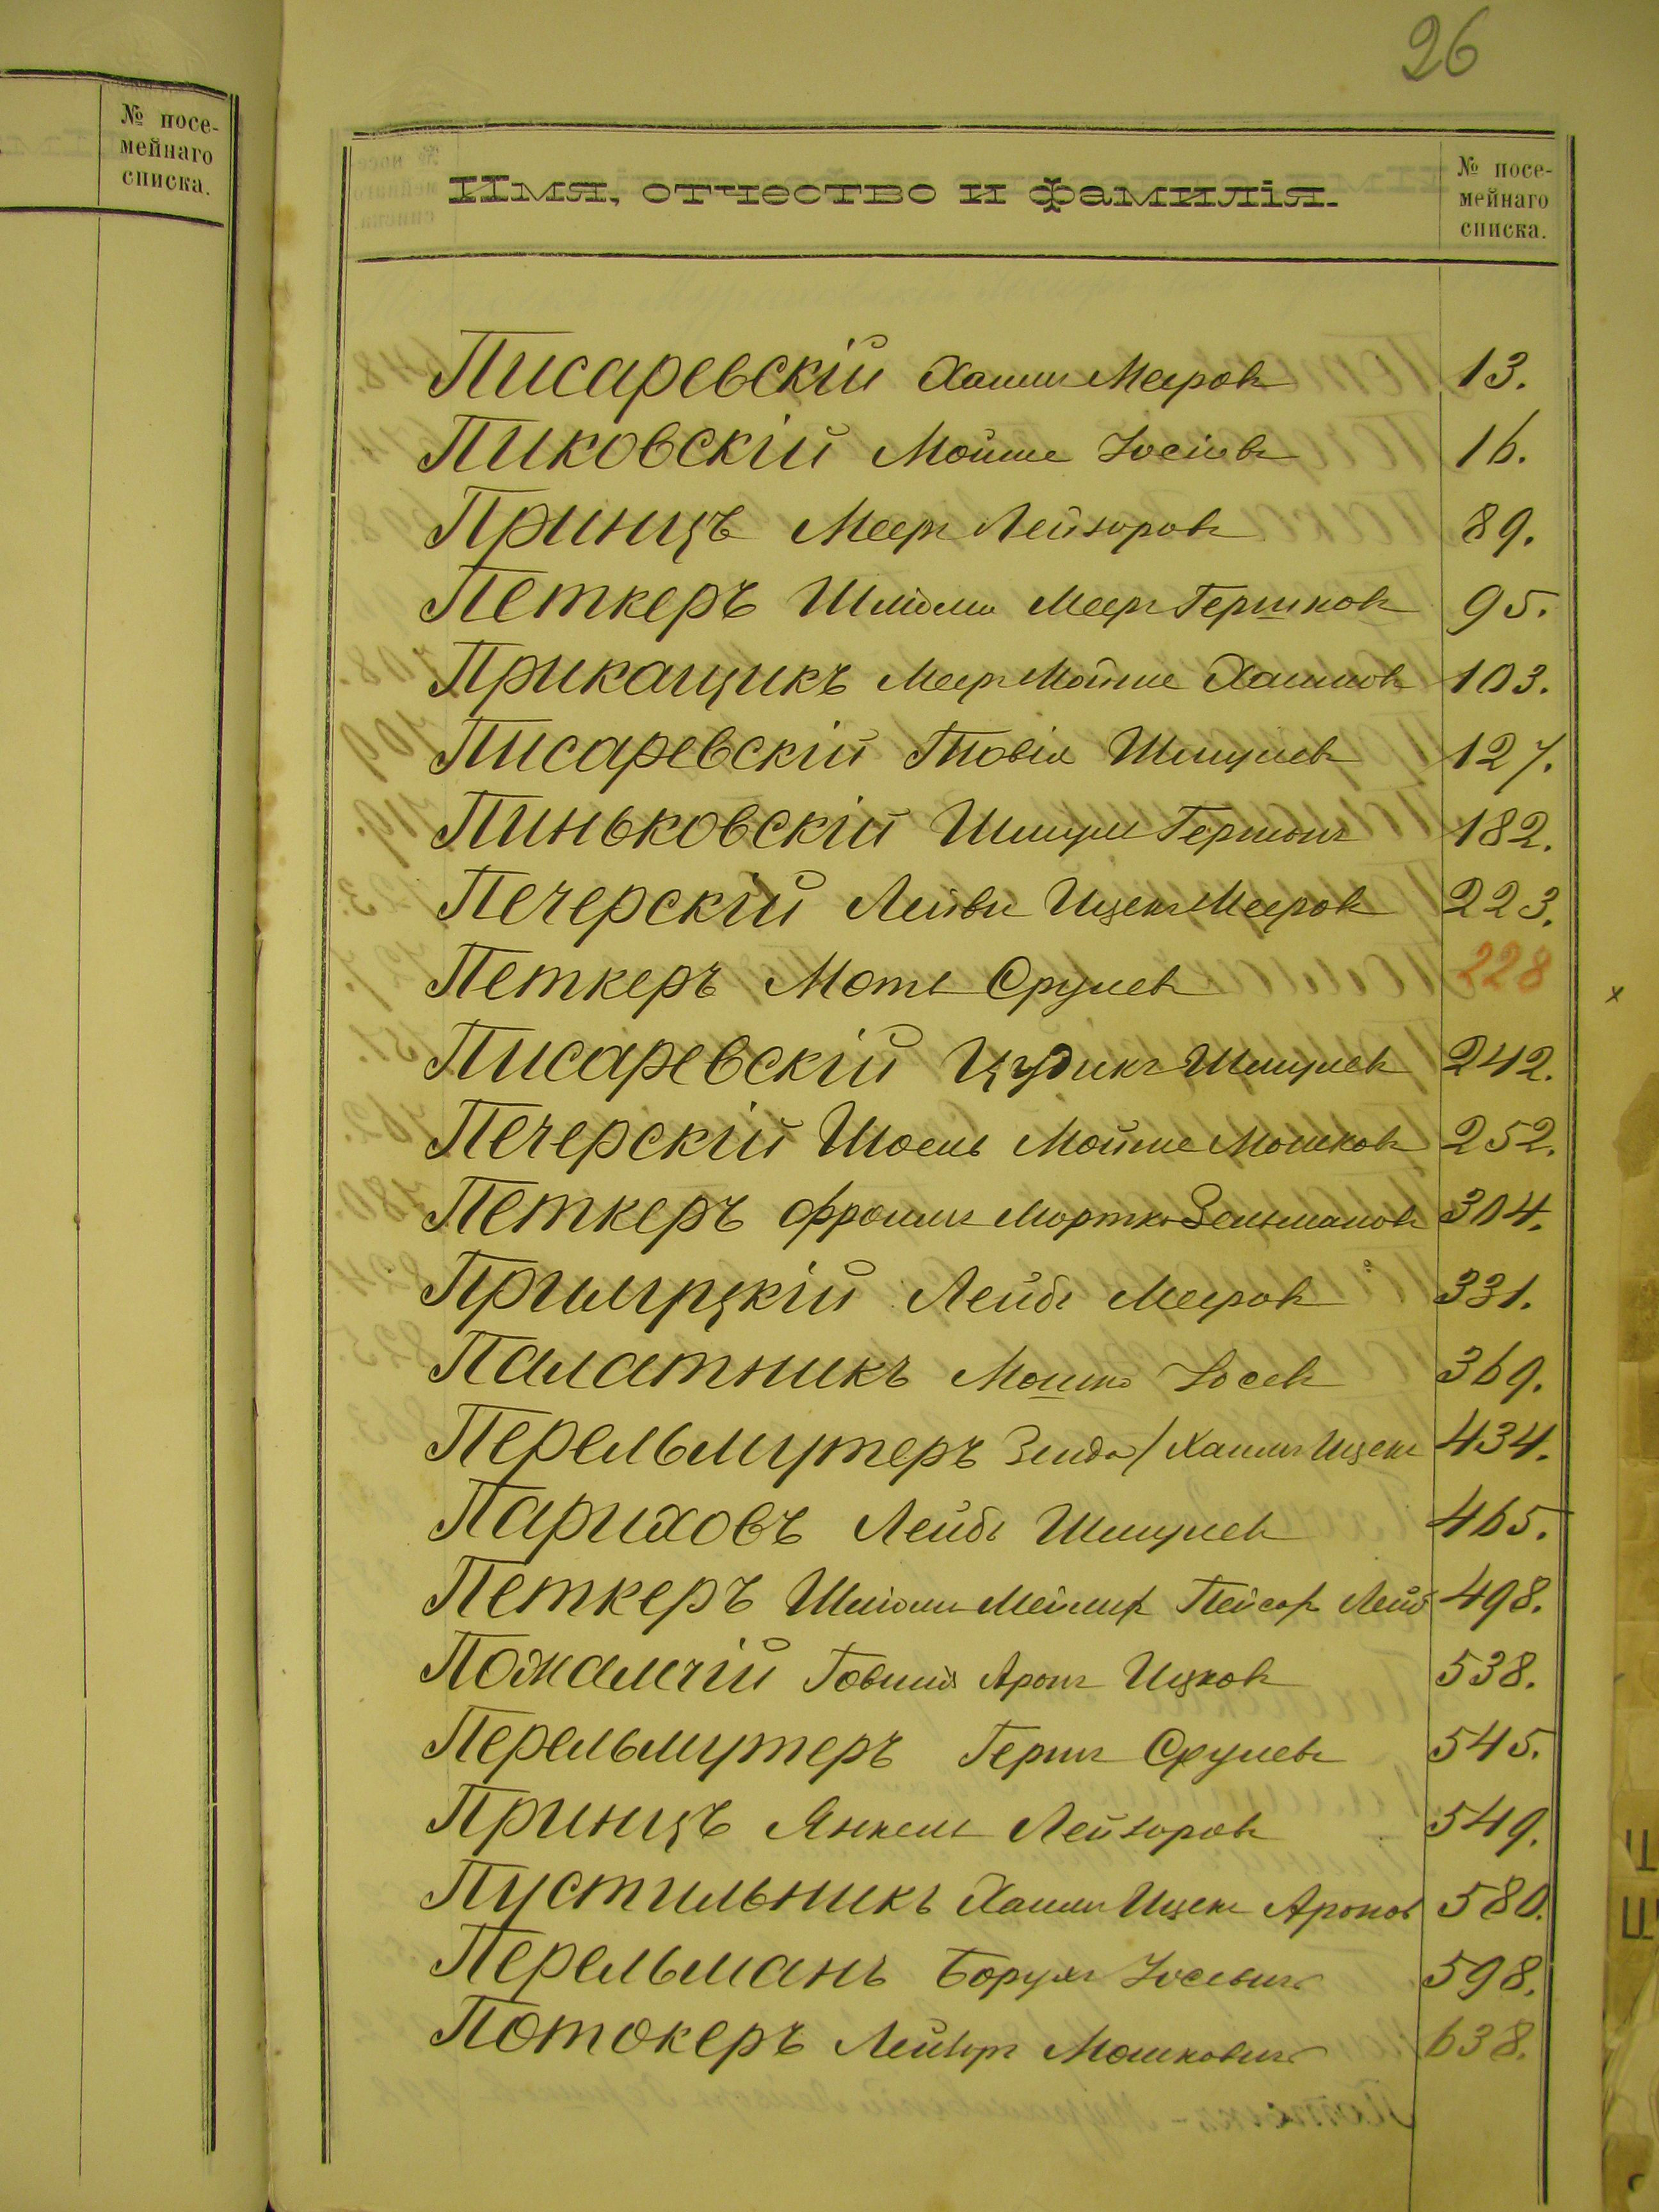 26
№ посе-
мейнаго
списка.
Имя, отчество и фамилія.
№ посе-
мейнаго
списка.
Писаревскій Хаимъ Мееровъ 13.
Пиковскій Мойше Іосіовъ 16.
Принцъ Мееръ Лейзоровъ 89.
Петкеръ Шліома Мееръ Гершковъ 95.
Прикащикъ Мееръ Мойше Хаимовъ 103.
Писаревскій Товія Шмулевъ 127.
Пиньковскій Шмуль Гершонъ 182.
Печерскій Лейви Ицекъ Мееровъ 223.
Петкеръ Мотя Срулевъ 228
Писаревскій Цудикъ Шмулевъ 242.
Печерскій Шоель Мойше Мошковъ 252.
Петкеръ Фроимъ Мортко Зельмановъ 304.
Лейба Мееровъ 331.
Палатникъ Мошко Іосевъ 369.
Перельмутеръ Зейда / Хаимъ Ицекъ 434.
Париховъ Лейба Шмулевъ 465.
Петкеръ Шліома Пейсах Лейб 498.
Пожамчій Говшія Аронъ Ицковъ 538.
Перельмутеръ Гершъ Срулевъ 545.
Принцъ Янкель Лейзоровъ 549.
Пустильникъ Хаимъ Ицекъ Аронов 580.
Перельманъ Борухъ Іосевичъ 598.
Потокеръ Лейзоръ Мошковичъ 638.